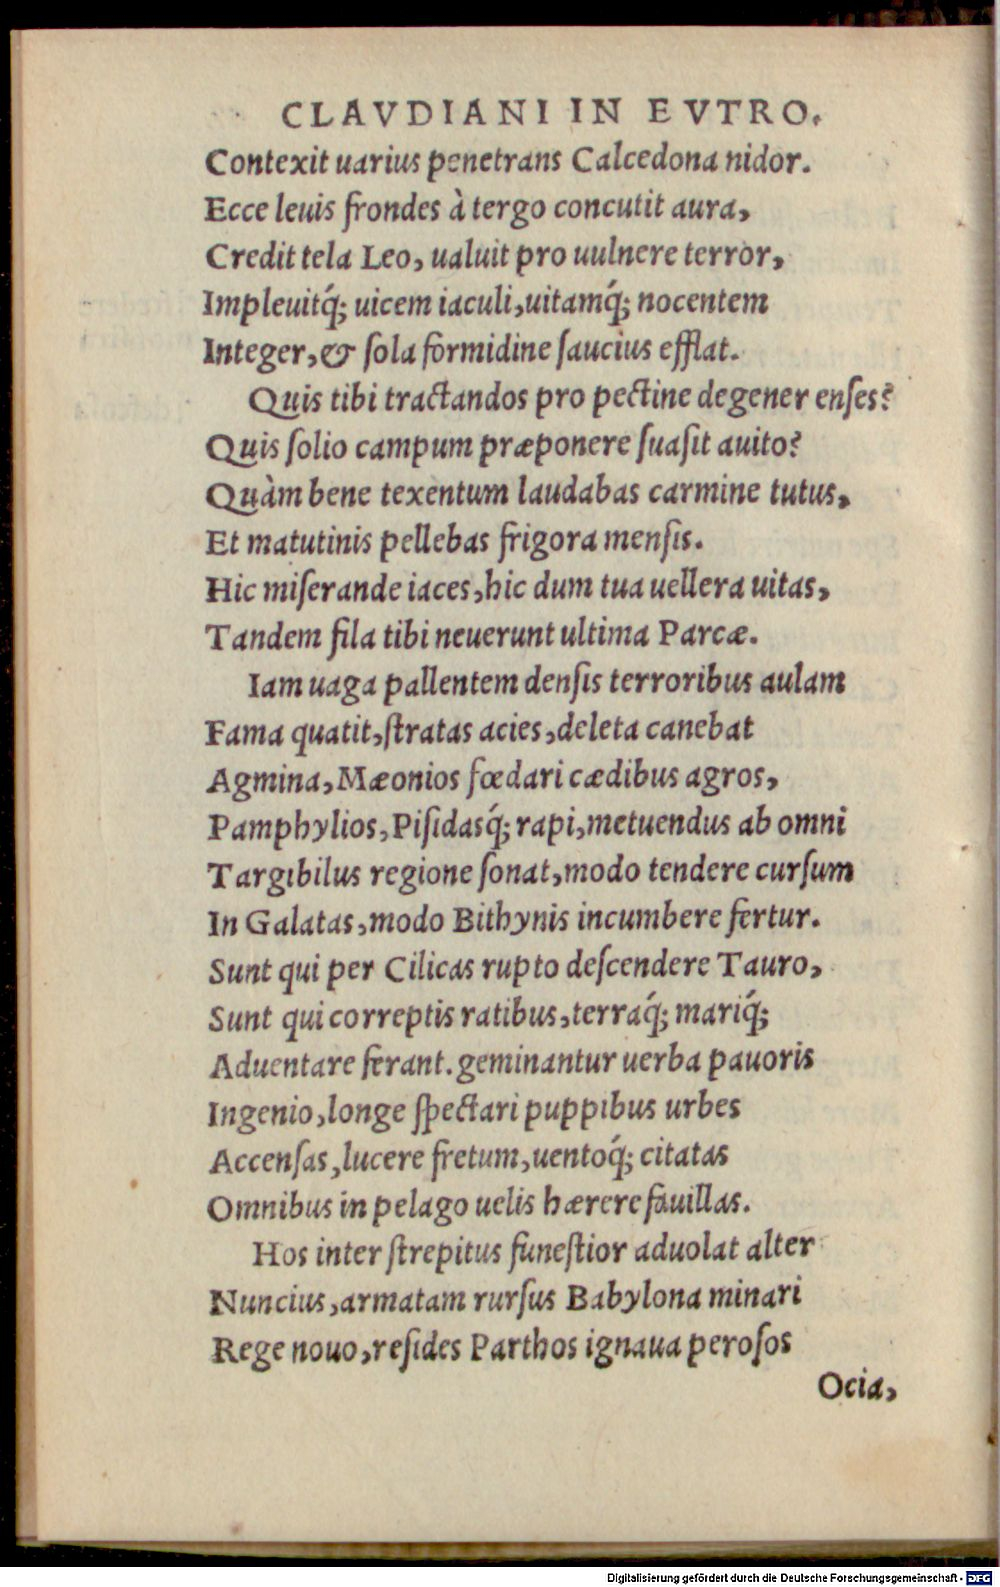 CLAVDIANI IN EVTRO.
Contexit uarius penetrans Calcedona nidor.
Ecce leuis frondes à tergo concutit aura,
Credit tela Leo, ualuit pro uulnere terror,
Impleuitq́; uicem iaculi, uitamq́; nocentem
Integer, & ſola formidine ſaucius efflat.
Quis tibi tractandos pro pectine degener enſes?
Quis ſolio campum præponere ſuaſit auito?
Quàm bene texentum laudabas carmine tutus,
Et matutinis pellebas frigora menſis.
Hic miſerande iaces, hic dum tua uellera uitas,
Tandem fila tibi neuerunt ultima Parcæ.
Iam uaga pallentem denſis terroribus aulam
Fama quatit, ſtratas acies, deleta canebat
Agmina, Mæonios fœdari cædibus agros,
Pamphylios, Piſidasq́; rapi, metuendus ab omni
Targibilus regione ſonat, modo tendere curſum
In Galatas, modo Bithynis incumbere fertur.
Sunt qui per Cilicas rupto deſcendere Tauro,
Sunt qui correptis ratibus, terraq́; mariq́;
Aduentare ferant. geminantur uerba pauoris
Ingenio, longe ſpectari puppibus urbes
Accenſas, lucere fretum, uentoq́; citatas
Omnibus in pelago uelis hærere fauillas.
Hos inter ſtrepitus funeſtior aduolat alter
Nuncius, armatam rurſus Babylona minari
Rege nouo, reſides Parthos ignaua peroſos
Ocia,
Digitalisierung gefördert durch die Deutsche Forschungsgemeinschaft - DFG